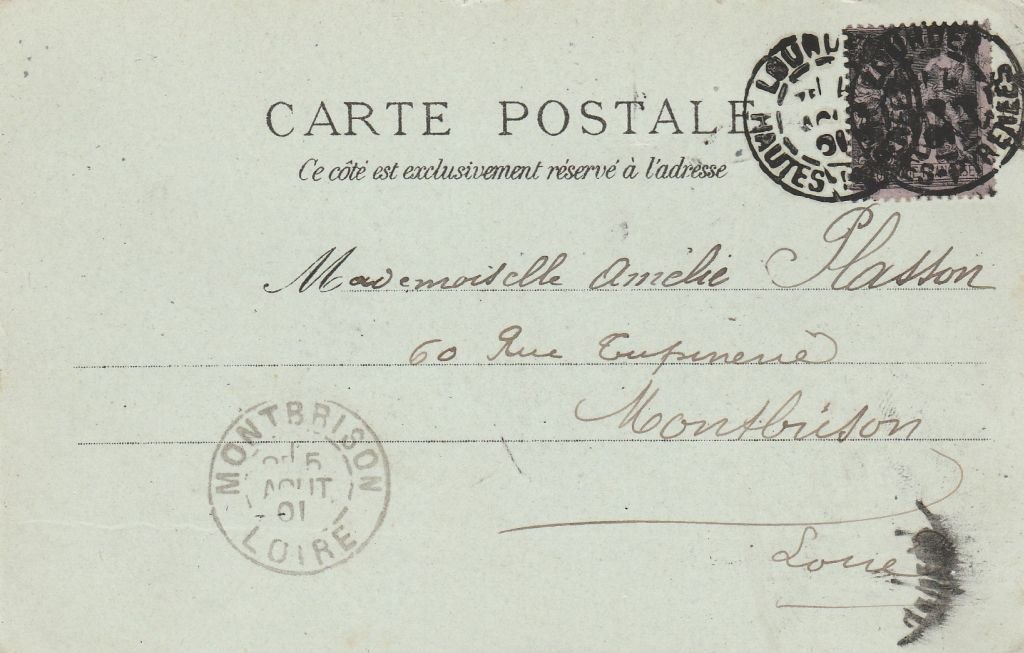 CARTE POSTALE
Ce côté est exclusivement réservé à l'adresse
LOURDES
AOUT
01
HAUTES-PYRENEES
Mademoiselle Amélie Plasson
60 Rue Tupinerie
Montbrison
Loire
MONTBRISON
5
AOUT
01
LOIRE